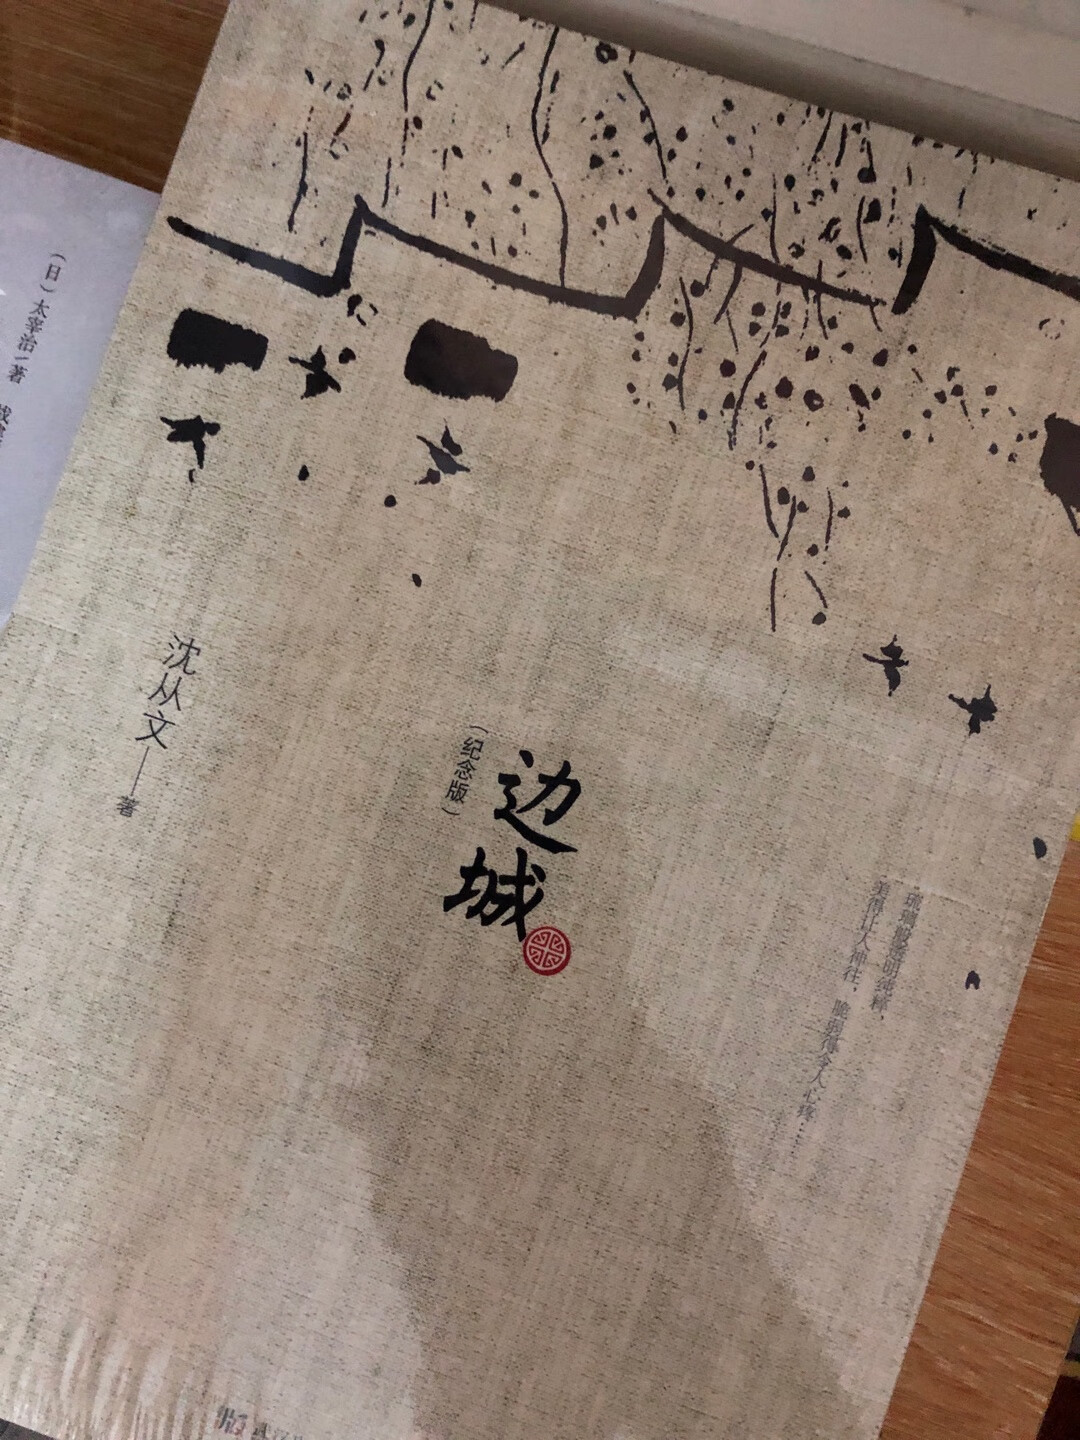 边城
(纪念版)
沈从文——著
琉璃般透明纯粹，
美得让人神往，脆弱得令人心疼……
(日)太宰治/著